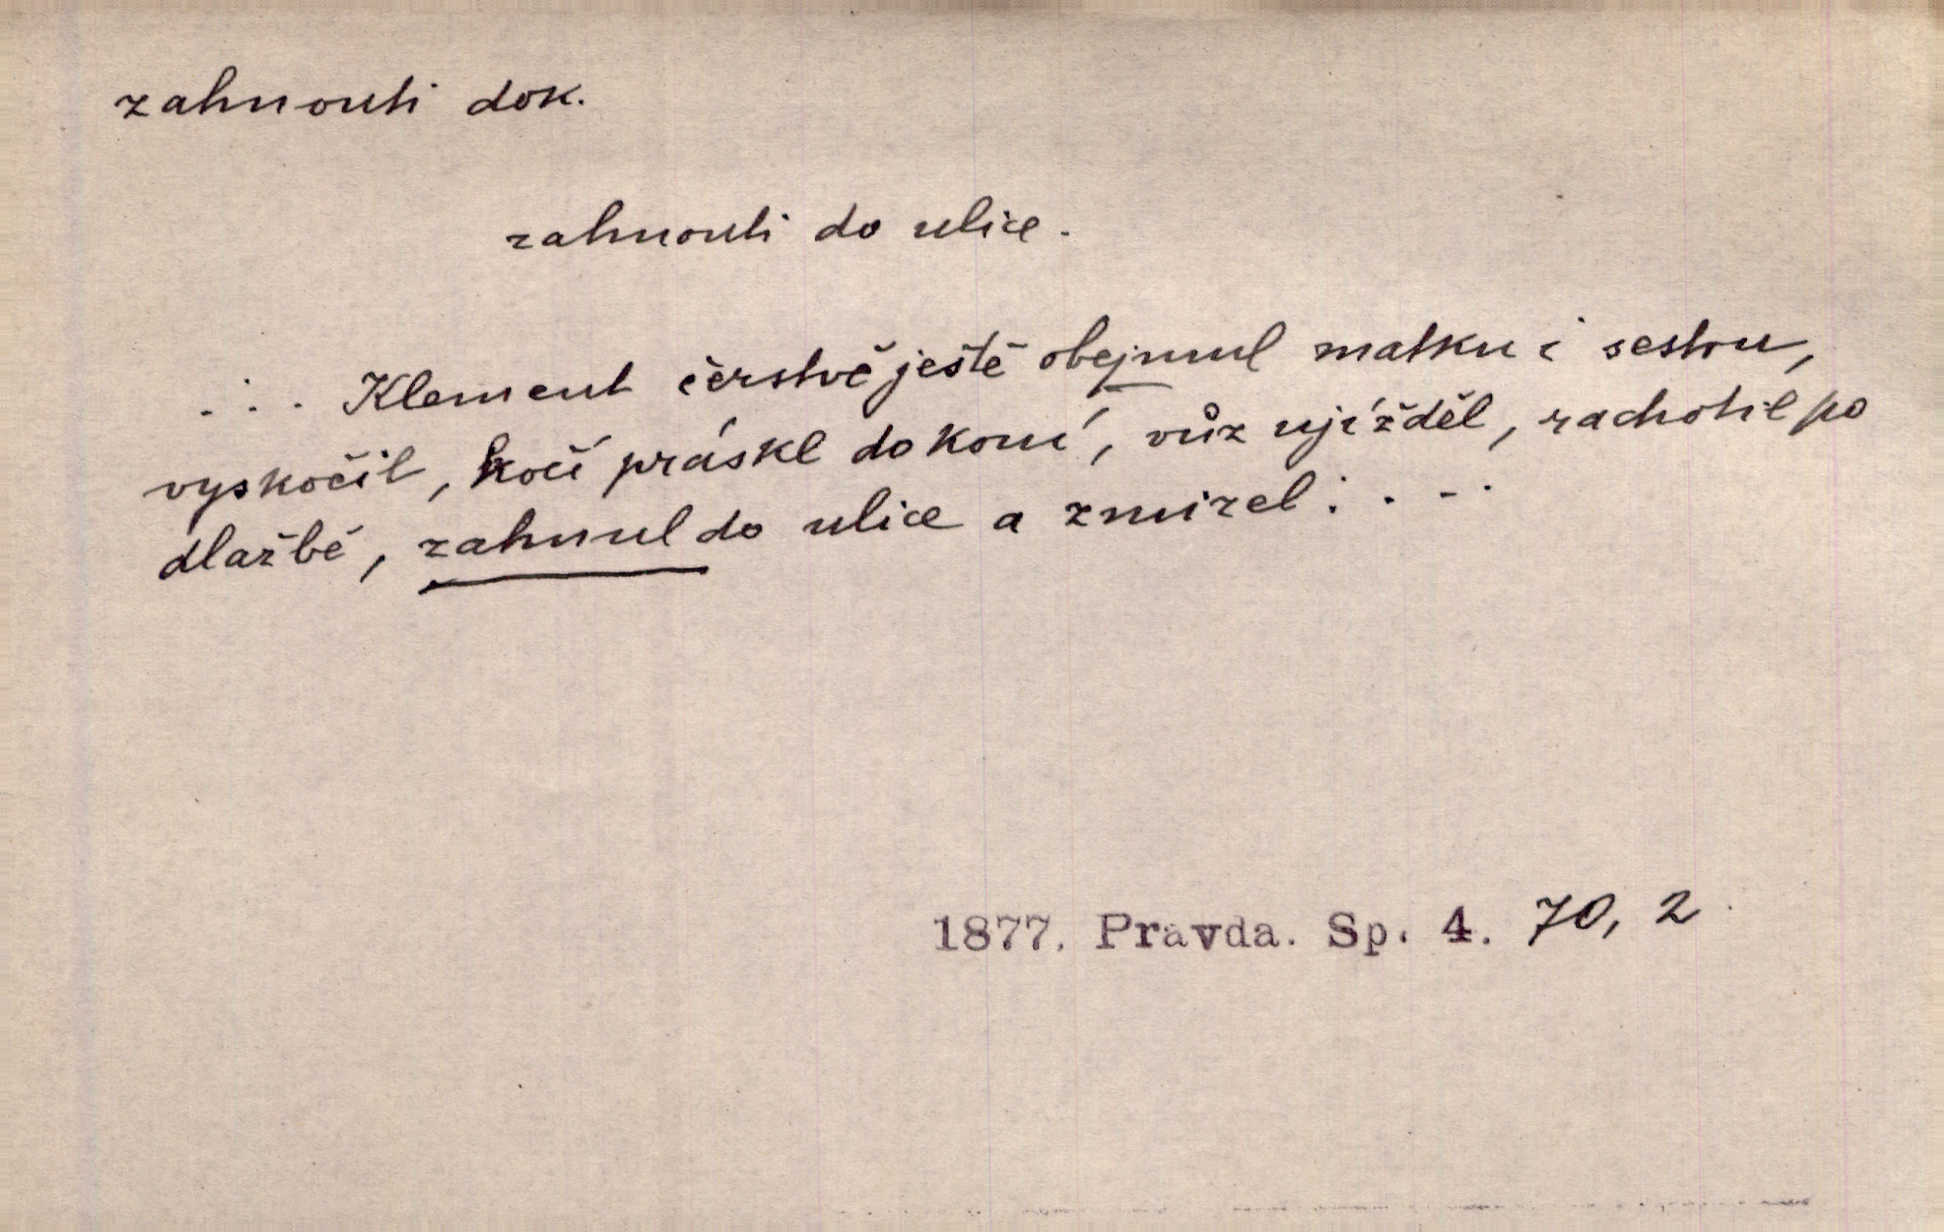 zahnouti dok.
zahnouti do ulice.
... Klement čerstvě ještě obejmul matku i sestru,
vyskočil, kočí práskl do koní, vůz ujížděl, rachotil po
dlažbě, zahnul do ulice a zmizel: ...
1877. Pravda. Sp. 4. 70, 2